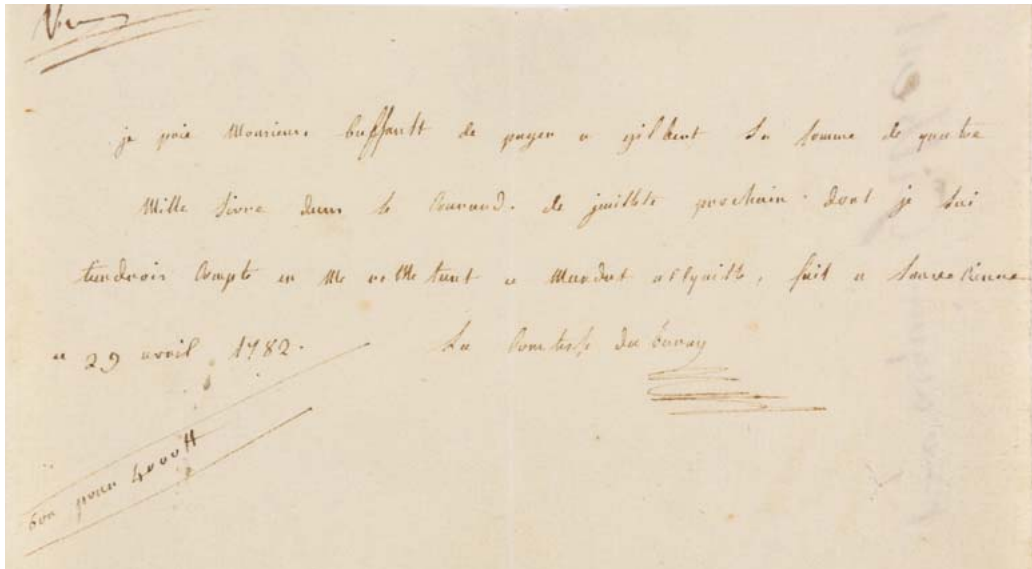 Vu
je prie Monsieur buffault de payer a gilbert la somme de quatre
Mille livre dans le Courand. de juilllet prochain. dont je lui
tiendrois Compte en Me remettant ce Mandat acquitté, fait a
ce 29 avril 1782. La Comtesse du barry
bon pour 4000 ₶